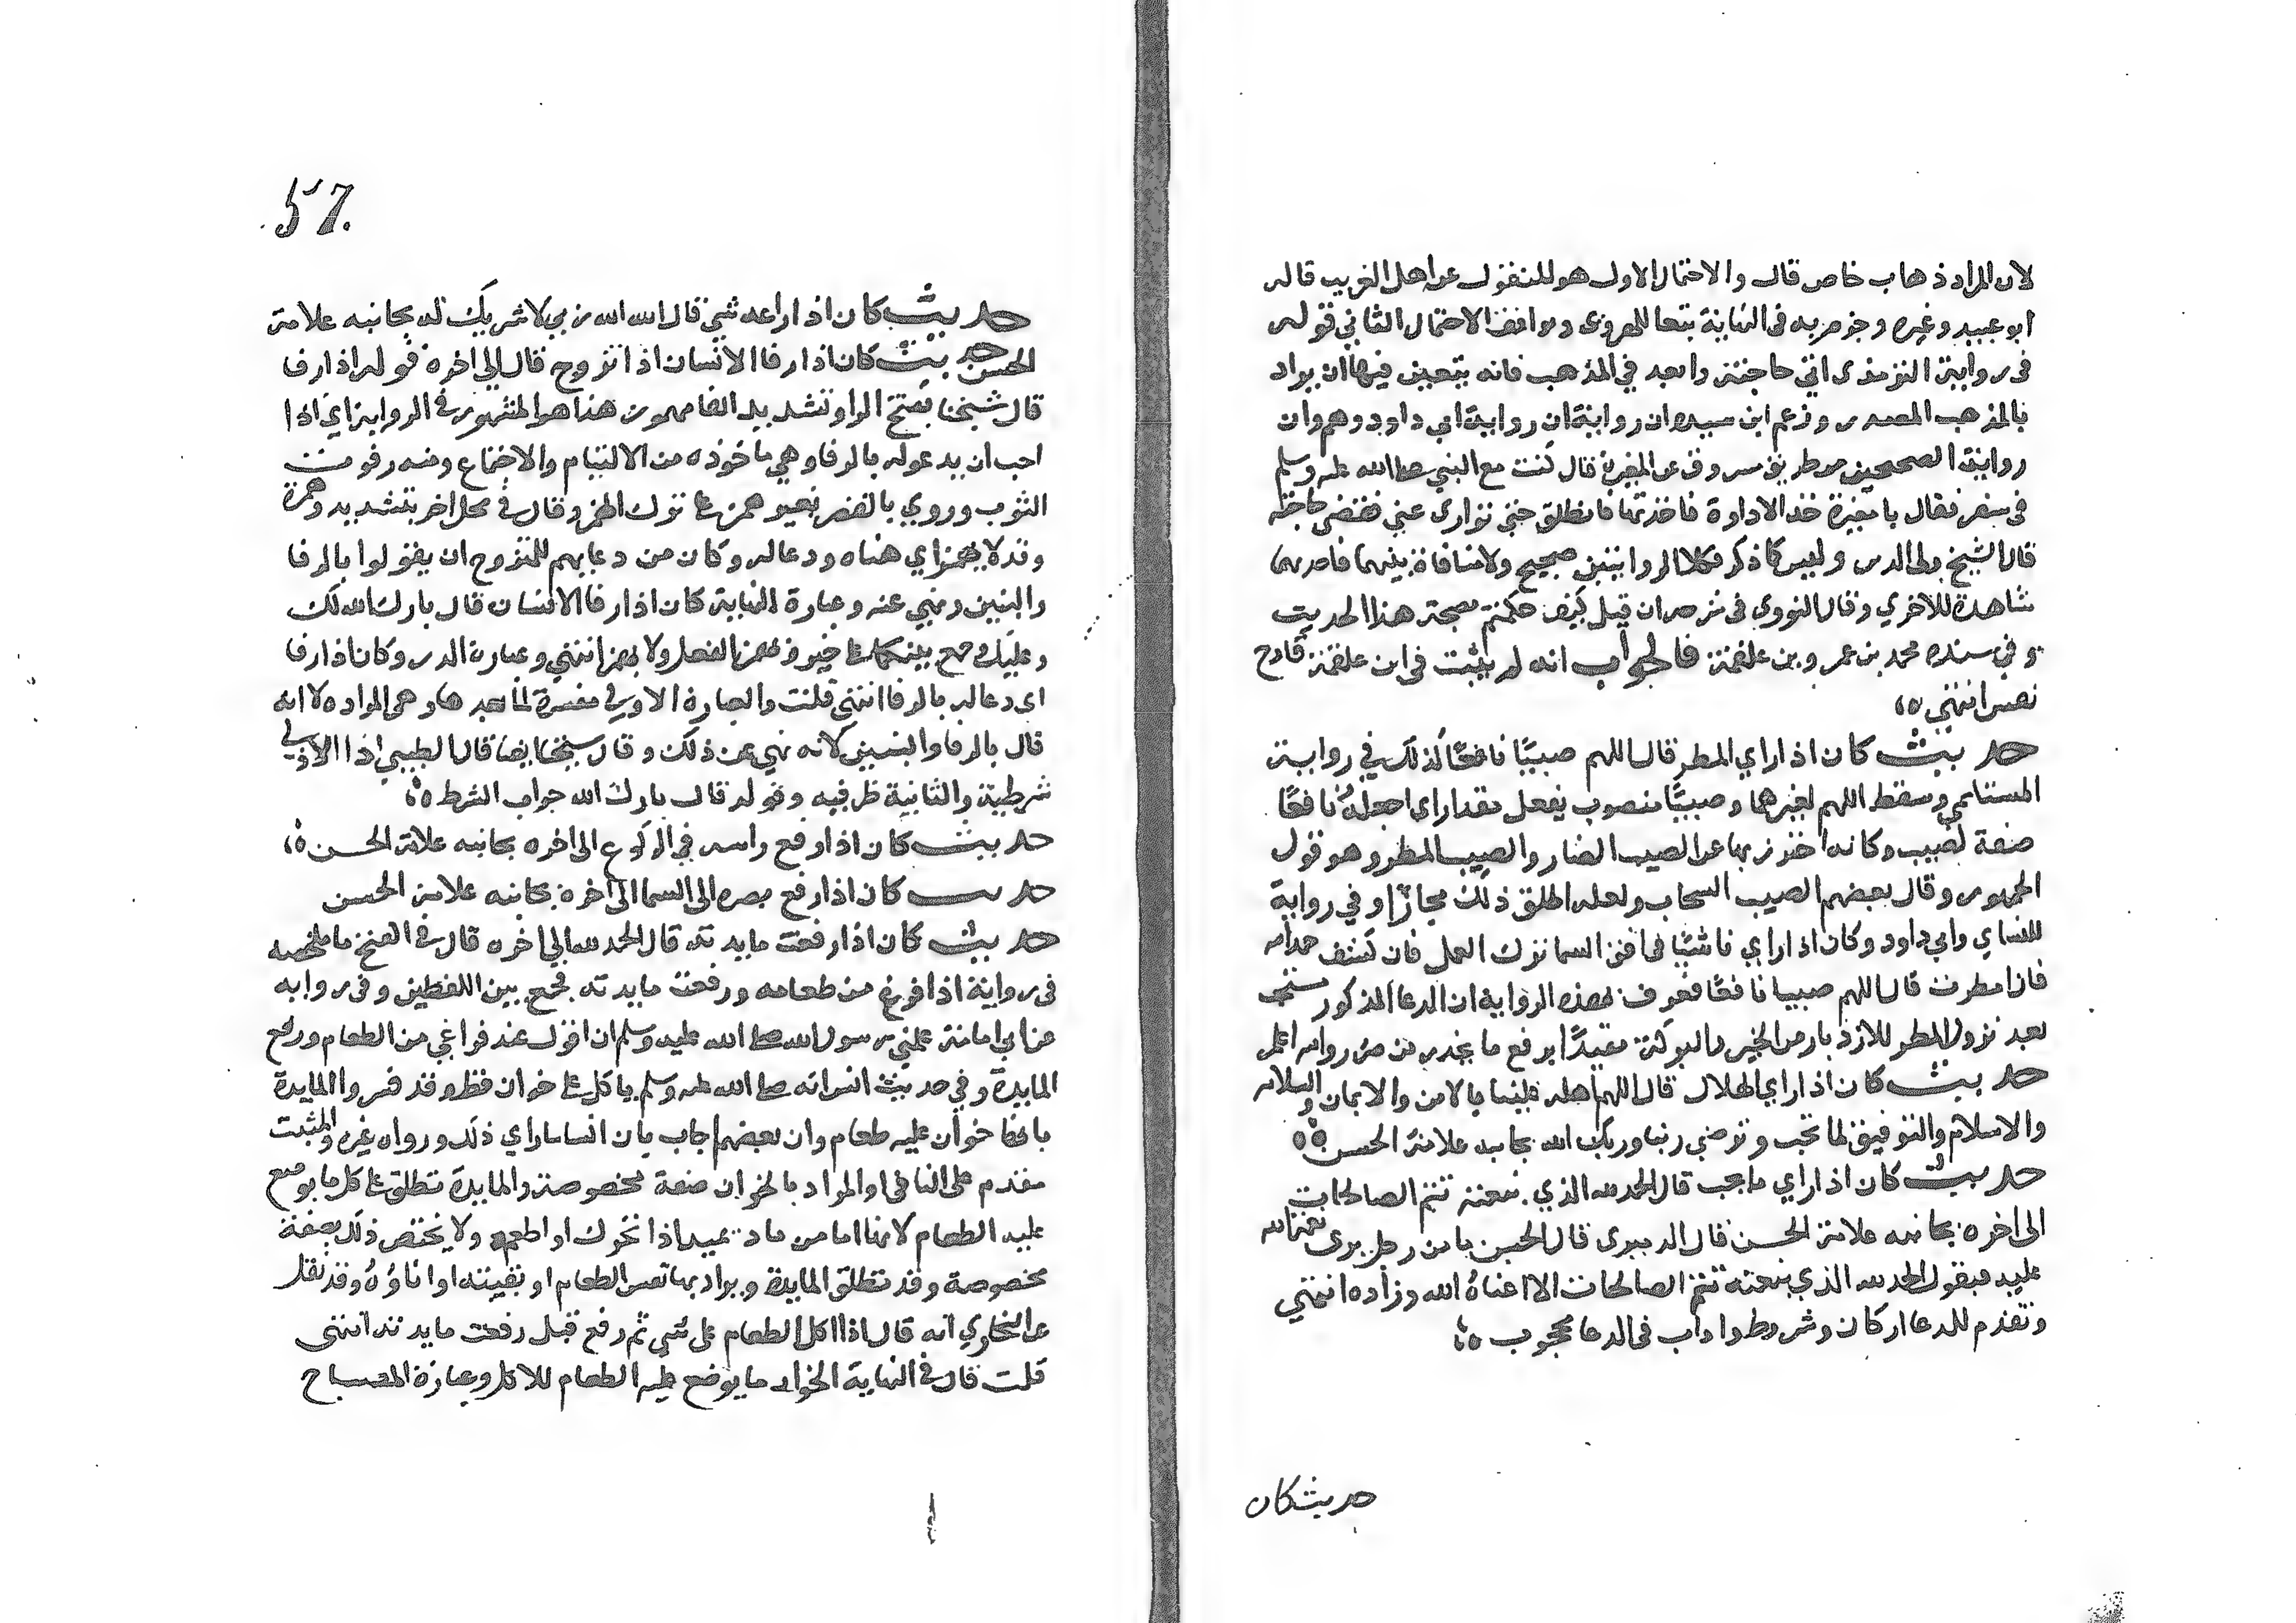 لان المراد ذهاب خاص قال والاحتمال الاول هو المنقول عن اهل الغريب قاله
ابو عبيد وغيره وجزم به في النهاية تبعا للهروي ويوافق الاحتمال الثاني قوله
في رواية الترمذي اتي حاجته وابعد في المذهب فانه يتعين فيها ان يراد
بالمذهب المصدر وزعم ابن سيده ان رواية ان رواية ابي داود وهم وان
رواية الصحيحين من طريق مسروق عن المغيرة قال كنت مع النبي صلى الله عليه وسلم
في سفر فقال يا مغيرة خذ الاداوة فاخذتها فانطلق حتى توارى عني فقضى حاجته
قال الشيخ ولي الدين وليس كما ذكر فكلا الروايتين صحيح ولا منافاة بينهما فاحداهما
شاهدة للاخري وقال النووي في شرحه ان قيل كيف حكمتم بصحة هذا الحديث
وفي سنده محمد بن عمرو بن علقمة فالجواب انه لم يثبت في ابن علقمة قادح
نصر انتهى
حديث كان اذا راي المطر قال اللهم صيبًا نافعًا كذلك في رواية
المستملي وسقط اللهم لغيرها وصيبًا منصوب بفعل مقدر اي اجعله نافعًا
صفة لصيب وكانه احترز بها عن الصيب الضار والصيب المطر وهو قول
الجمهور وقال بعضهم الصيب السحاب ولعله اطلق ذلك مجازًا وفي رواية
للنساي وابي داود وكان اذا راي ناشئًا في افق السما ترك العمل فان كشف حمد الله
فان امطرت قال اللهم صيبا نافعًا فعرف بهذه الرواية ان الدعا المذكور يستحب
بعد نزول المطر للازدياد من الخير والبركة مقيدًا برفع ما يحذر من ضرر والله اعلم
حديث كان اذا راي الهلال قال اللهم اهله علينا بالامن والايمان والسلامه
والاسلام والتوفيق لما تحب وترضي ربنا وربك الله بجانبه علامة الحسن
حديث كان اذا راي ما يحب قال الحمد لله الذي بنعمته تتم الصالحات
الى اخره بجانبه علامة الحسن قال الدميري قال الحسن ما من رجل يرى نعمة الله
عليه فيقول الحمد لله الذي بنعمته تتم الصالحات الا اغناه الله وزاده انتهي
وتقدم للدعا اركان وشروط واداب في الدعا محبوب
حديث كان
57
حديث كان اذا راعه شي قال الله الله ربي لا شريك له بجانبه علامة
الحسن حديث كان اذا رفا الانسان اذا تزوج قال الي اخره قوله اذا رفا
قال شيخنا بفتح الرا وتشديد الفا مهموز هذا هو المشهور في الرواية اي اذا
احب ان يدعو له بالرفا وهي ماخوذه من الالتيام والاجتماع ومنه رفوت
الثوب وروي بالقصر بغير همز على ترك الهمز وقال في محل اخر بتشديد وهمزة
وقد لا يهمز اي هناه ودعا له وكان من دعايهم للمتزوج ان يقولوا بالرفا
والبنين ونهي عنه وعبارة النهاية كان اذا رفا الانسان قال بارك الله لك
وعليك وجمع بينكما على خير ويهمز الفعل ولا يهمز انتهي وعبارة الدر وكان اذا رفا
اي دعا له بالرفا انتهى قلت والعبارة الاولي مفسرة لما بعدها وهي المراد لا انه
قال بالرفا والبنين لانه نهي عن ذلك وقال شيخنا ايضا قال الطيبي اذا الاولي
شرطية والثانية ظرفيه وقوله قال بارك الله جواب الشرط
حديث كان اذا رفع راسه في الركوع الى اخره بجانبه علامة الحسن
حديث كان اذا رفع بصره الى السما الى اخره بجانبه علامة الحسن
حديث كان اذا رفعت مايدته قال الحمد لله الي اخره قال في الفتح ما ملخصه
في رواية اذا فرغ من طعامه ورفعت مايدته فجمع بين اللفظين وفي روايه
عن ابي امامة علمني رسول الله صلى الله عليه وسلم ان اقول عند فراغي من الطعام ورفع
المايدة وفي حديث انس انه صلى الله عليه وسلم ياكل على خوان قط وقد فسروا المايدة
بانها خوان عليه طعام وان بعضهم اجاب بان انسا ما راي ذلك ورواه غيره والمثبت
مقدم على النافي او المراد بالخوان صفة مخصوصة والمايدة تطلق على كل ما يوضع
عليه الطعام لانها اما من ماد يميد اذا تحرك او اطعم ولا يختص ذلك بصفة
مخصوصة وقد تطلق المايدة ويراد بها نفس الطعام او بقيته او اناؤه وقد نقل
عن البخاري انه قال اذا اكل الطعام على شي ثم رفع قيل رفعت مايدته انتهى
قلت قال في النهاية الخوان ما يوضع عليه الطعام للاكل وعبارة المصباح